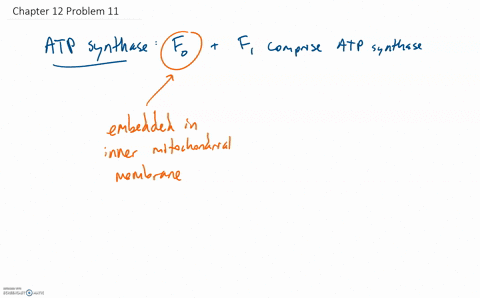 Chapter 12 Problem 11
ATP synthase: F₀ + F₁ comprise ATP synthase
embedded in
inner mitochondrial
membrane